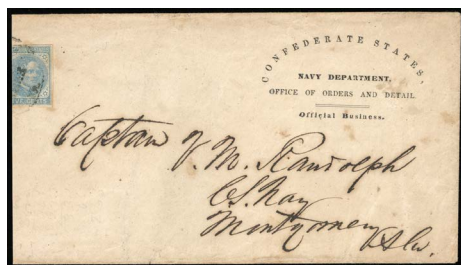 CONFEDERATE STATES,
NAVY DEPARTMENT,
OFFICE OF ORDERS AND DETAIL.
Official Business.
Captain V. M. Randolph
C.S. Navy
Montgomery
Ala.